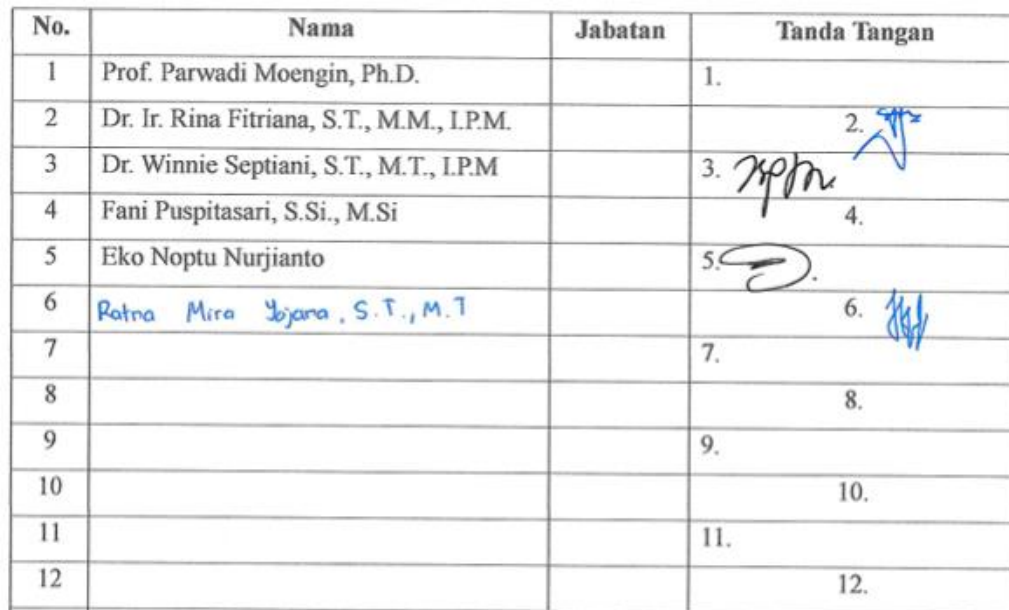 No. Nama Jabatan Tanda Tangan
1 Prof. Parwadi Moengin, Ph.D. 1.
2 Dr. Ir. Rina Fitriana, S.T., M.M., I.P.M. 2.
3 Dr. Winnie Septiani, S.T., M.T., I.P.M 3.
4 Fani Puspitasari, S.Si., M.Si 4.
5 Eko Noptu Nurjianto 5.
6 Ratna Mira Yojana, S.T., M.T 6.
7 7.
8 8.
9 9.
10 10.
11 11.
12 12.